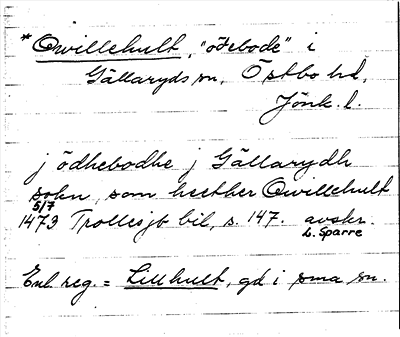 *Qwillehult, "ödebode" i
Gällaryds sn, Östbo hd,
Jönk. l.
j ödhebodhe j Gällarydh
sokn, som heether Qwillehult
5/7
1473 Trollesjö bil, s. 147. avskr.
L. Sparre
Enl reg. = Lillhult, gd i sma sn.